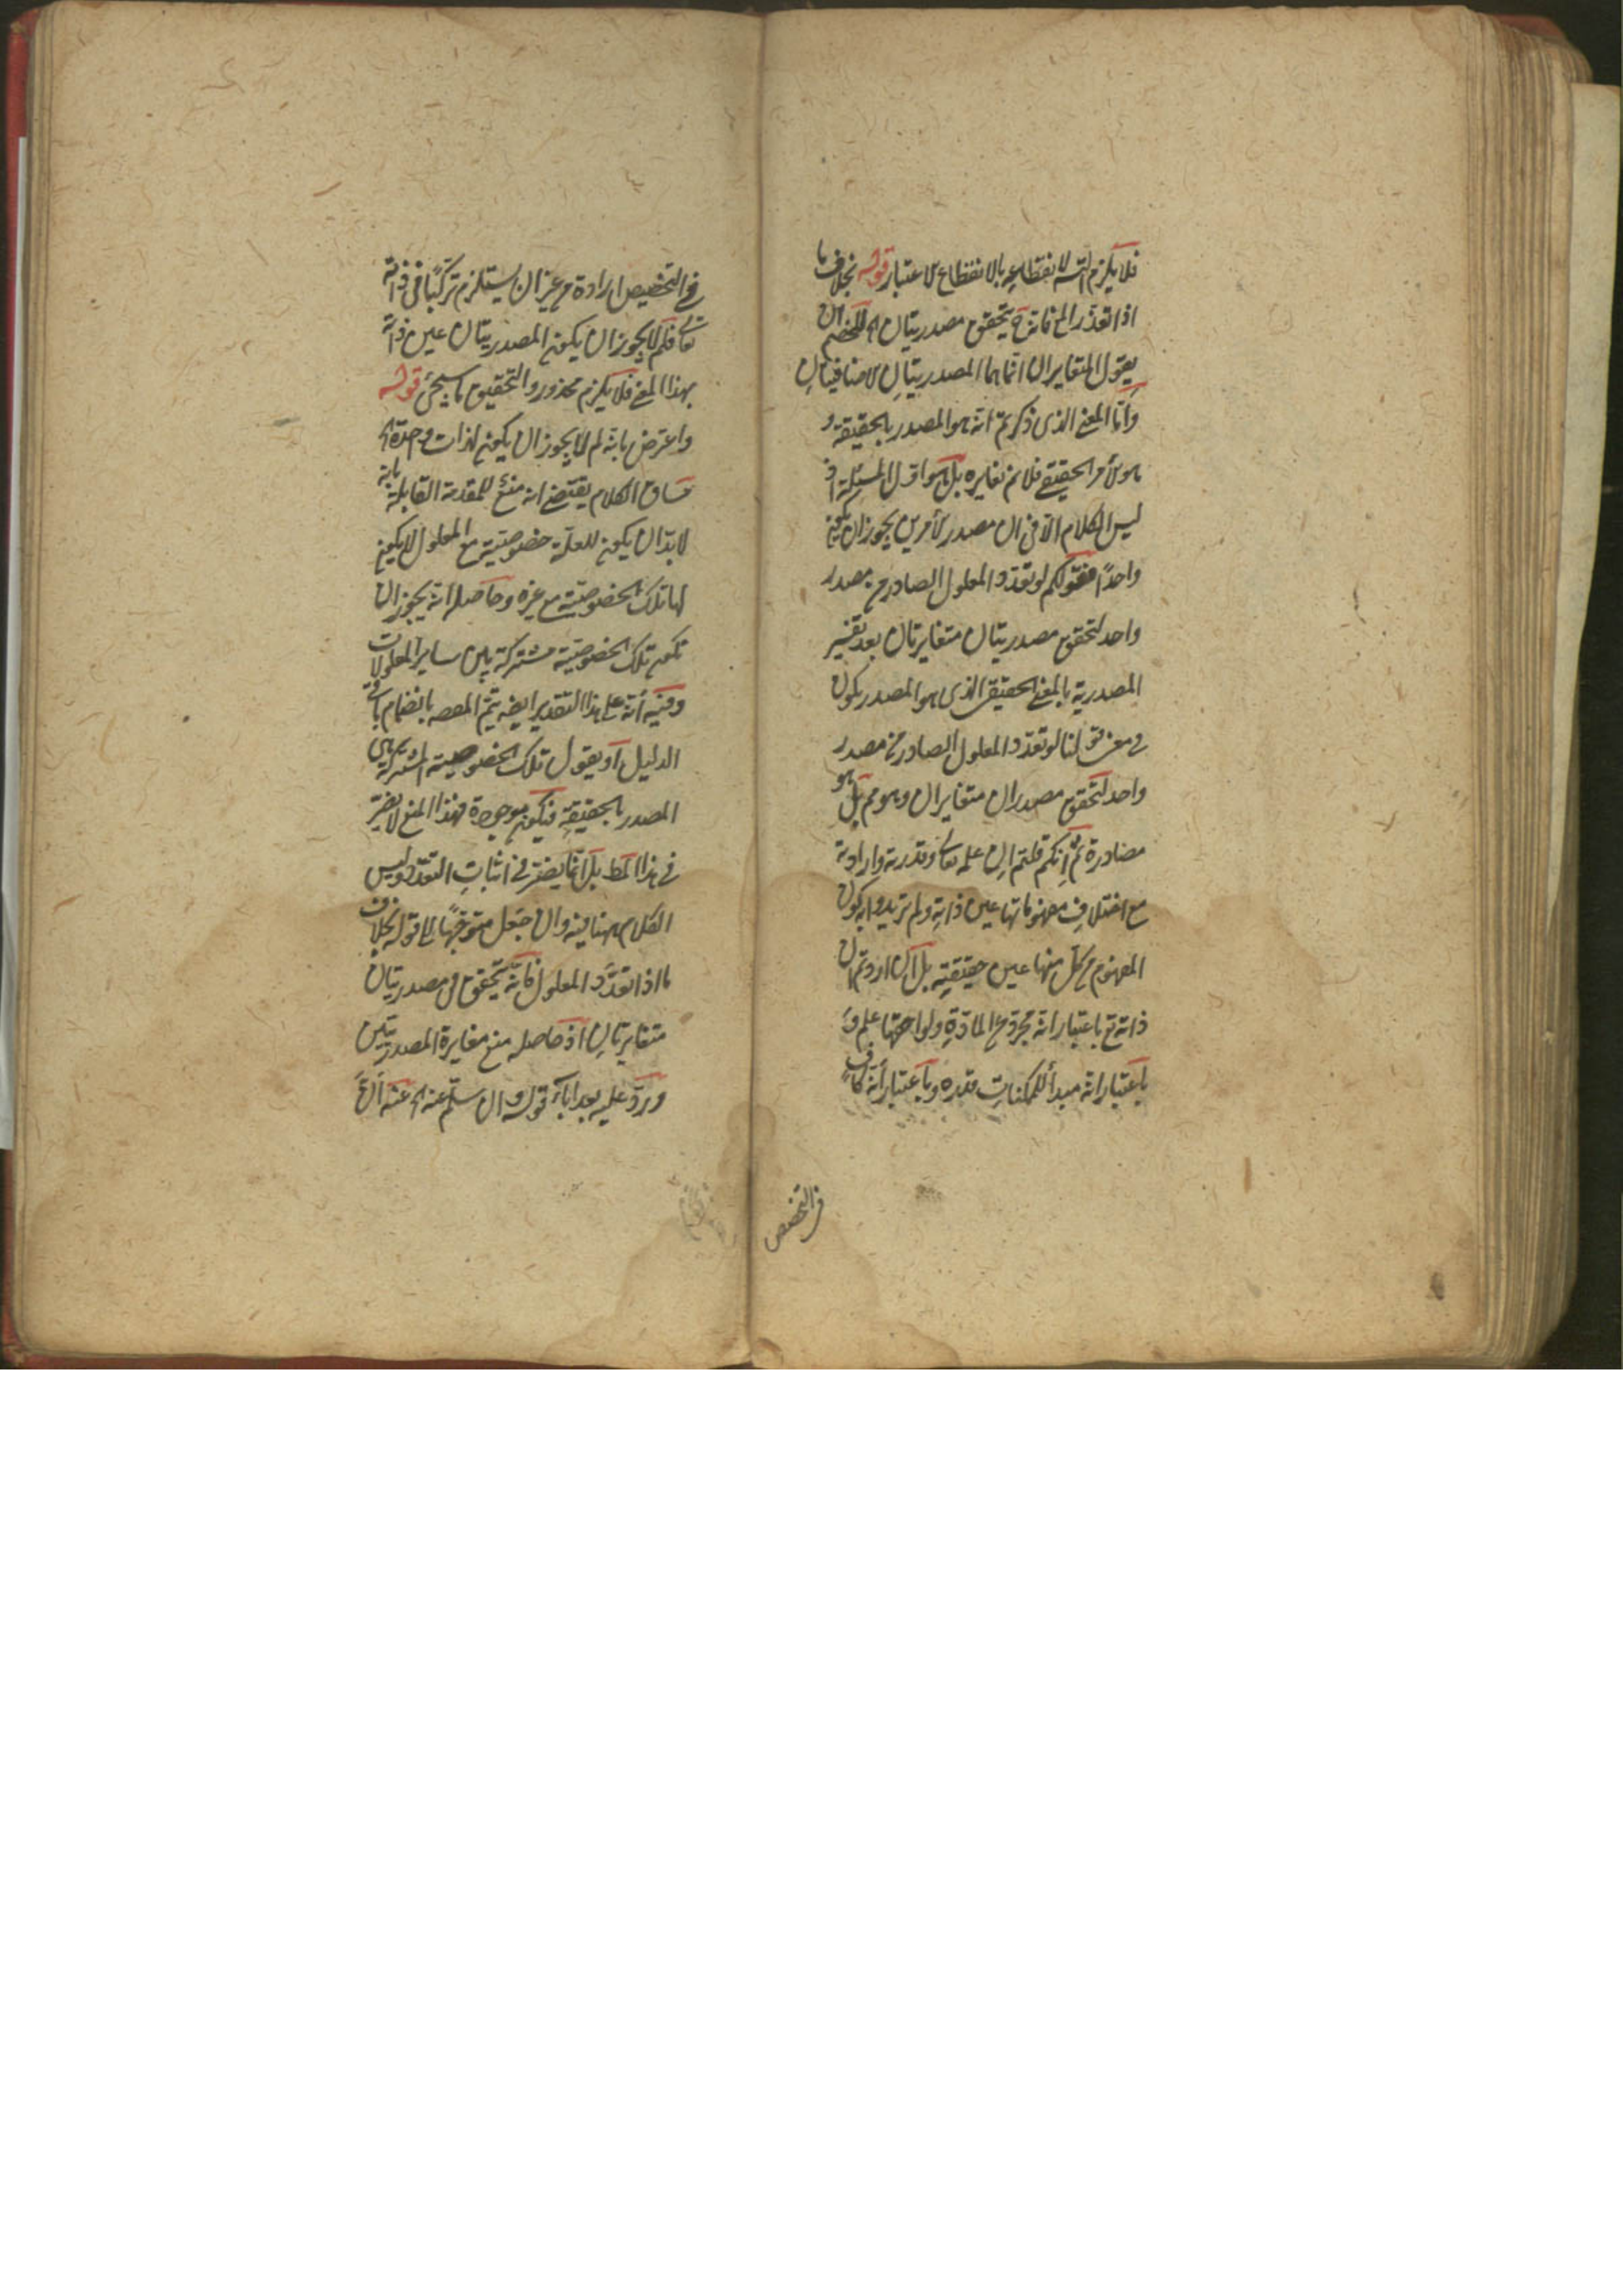 فلا يلزم التسلسل لانقطاعه بالانقطاع الاعتبار قوله بخلاف ما
اذا تعدد الخ فانه ح يتحقق مصدريتان اه للخصم ان
يقول المتغايران انما هما المصدريتان الاضافيتان
واما المعنى الذى ذكرتم انه هو المصدر بالحقيقة و
هو الأمر الحقيقى فلا نم تغايره بل هو اول المسئلة اذ
ليس الكلام الا فى ان مصدر الأمرين يجوز ان يكون
واحدًا فقولكم لو تعدد المعلول الصادر من مصدر
واحد لتحقق مصدريتان متغايرتان بعد تفسير
المصدرية بالمعنى الحقيقى الذى هو المصدر يكون
فى معنى قولنا لو تعدد المعلول الصادر من مصدر
واحد لتحقق مصدران متغايران وهو مم بل هو
مصادرة ثم انكم قلتم ان علمه تعالى وقدرته وارادته
مع اختلاف مفهوماتها عين ذاته ولم تريدوا به كون
المفهوم من كل منها عين حقيقته بل اردتم ان
ذاته تع باعتبار انه مجرد عن المادة ولواحقها علم و
باعتبار انه مبدأ للممكنات قدره وباعتبار أنه كاف
فى التخصيص
فى التخصيص ارادة من غير ان يستلزم تركبًا فى ذاته
تعالى فلم لا يجوز ان يكون المصدريتان عين ذاته
بهذا المعنى فلا يلزم محذور والتحقيق ما سيجئ قوله
واعترض بانه لم لا يجوز ان يكون لذات واحدة اه
مساق الكلام يقتضى انه منع للمقدمة القايلة بانه
لابد ان يكون للعلة خصوصية مع المعلول لا يكون
لها تلك الخصوصية مع غيره وحاصله انه يجوز ان
تكون تلك الخصوصية مشتركة بين ساير المعلولات
وفيه أنه على هذا التقدير ايضه يتم المقصه بانضمام باقى
الدليل او يقول تلك الخصوصية المشتركة هى
المصدر بالحقيقة فيكون موجودة فهذا المنع لا يضر
فى هذا المط بل انما يضر فى اثبات التعدد وليس
الكلام ههنا فيه وان جعل متوجهًا الى قوله بخلاف
ما اذا تعدد المعلول فانه يتحقق ح مصدريتان
متغايرتان اذ حاصله منع مغايرة المصدريتين
ويرد عليه بعد اباء قوله وان سلم عنه اه عنه أن